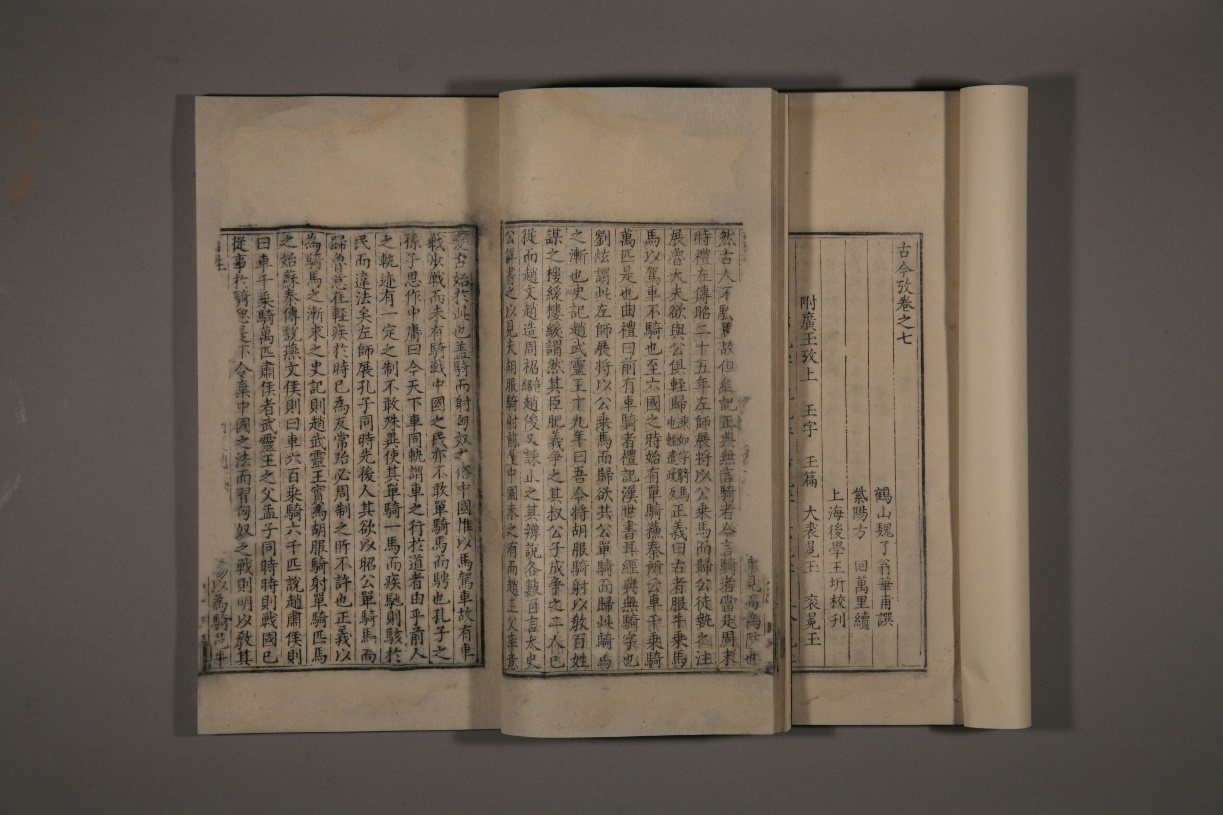 古今攷卷之七
鶴山魏了翁華甫譔
紫陽方　回萬里續
上海後學王圻校刋
附廣王攷上　玉字　玉篇　大裘冕玉　衮冕玉
時禮左傳昭二十五年左師展將以公乘馬而歸公徒執之注
展魯大夫欲與公俱輕歸乘如字騎馬也輕遣政反正義曰古者服牛乘馬
馬以駕車不騎也至六國之時始有單騎蘇秦所云車千乘騎
萬匹是也曲禮曰前有車騎者禮記漢世書耳經典無騎字也
劉炫謂此左師展將以公乘馬而歸欲共公單騎而歸此騎馬
之漸也史記趙武靈王十九年曰吾今將胡服騎射以敎百姓
謀之樓緩樓緩謂然其臣肥義爭之其叔公子成爭之二人已
從而趙文趙造周袑趙俊又諫止之其辨說各數百言太史
公詳書之以見夫胡服騎射前是中國未之有而趙王父率意
變古始於此也盖騎而射匈奴之俗中國惟以馬駕車故有車
戰步戰而未有騎戰中國之民亦不敢單騎馬而騁也孔子之
孫子思作中庸曰今天下車同軌謂車之行於道者由乎前人
之軌迹有一定之制不敢殊異使其單騎一馬而疾馳則駭於
民而違法矣左師展孔子同時先後人其欲以昭公單騎馬而
歸魯意在輕疾於時已為反常殆必周制之所不許也正義以
為騎馬之漸來之史記則趙武靈王實為胡服騎射單騎匹馬
之始蘇秦傳說燕文侯則曰車六百乘騎六千匹說趙肅侯則
曰車千乘騎萬匹肅侯者武靈王之父孟子同時時則戰國已
從事於騎 不令棄中國之法而習匈奴之戰則明以敎其